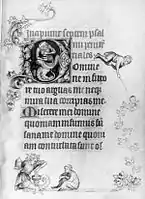 Incipiunt septem psal
mi peni
tenciales
Domine
ne in furo
re tuo arguas me neq
in ira tua corripias me
Miserere mei domine
quoniam infirmus sum
sana me domine quoni
am conturbata sunt os